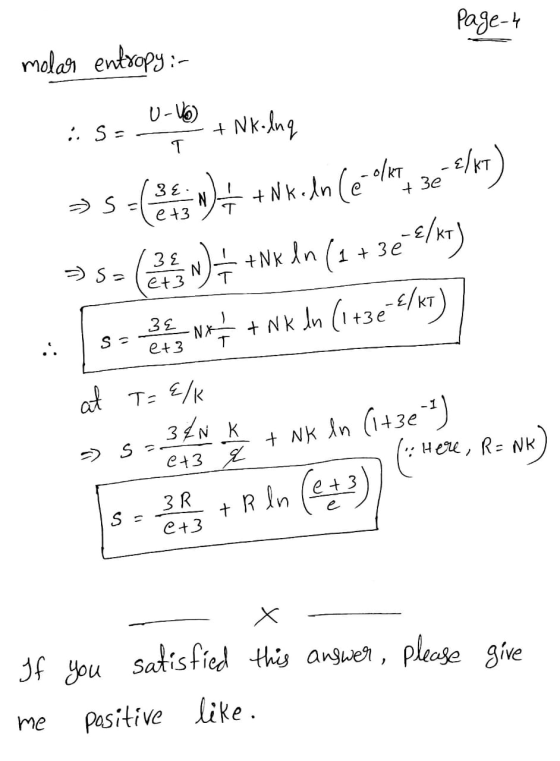 Page-4
molar entropy:-
∴ S = (U-U₀)/T + NK·ln q
⇒ S = (3ε/(e+3) · N) 1/T + NK·ln (e^(-0/KT) + 3e^(-ε/KT))
⇒ S = (3ε/(e+3) N) 1/T + NK ln (1 + 3e^(-ε/KT))
∴ S = 3ε/(e+3) N×1/T + NK ln (1+3e^(-ε/KT))
at T = ε/K
⇒ S = 3εN/(e+3) K/ε + NK ln (1+3e^(-1))
(∵ Here, R = NK)
S = 3R/(e+3) + R ln ((e+3)/e)
X
If you satisfied this answer, please give
me positive like.